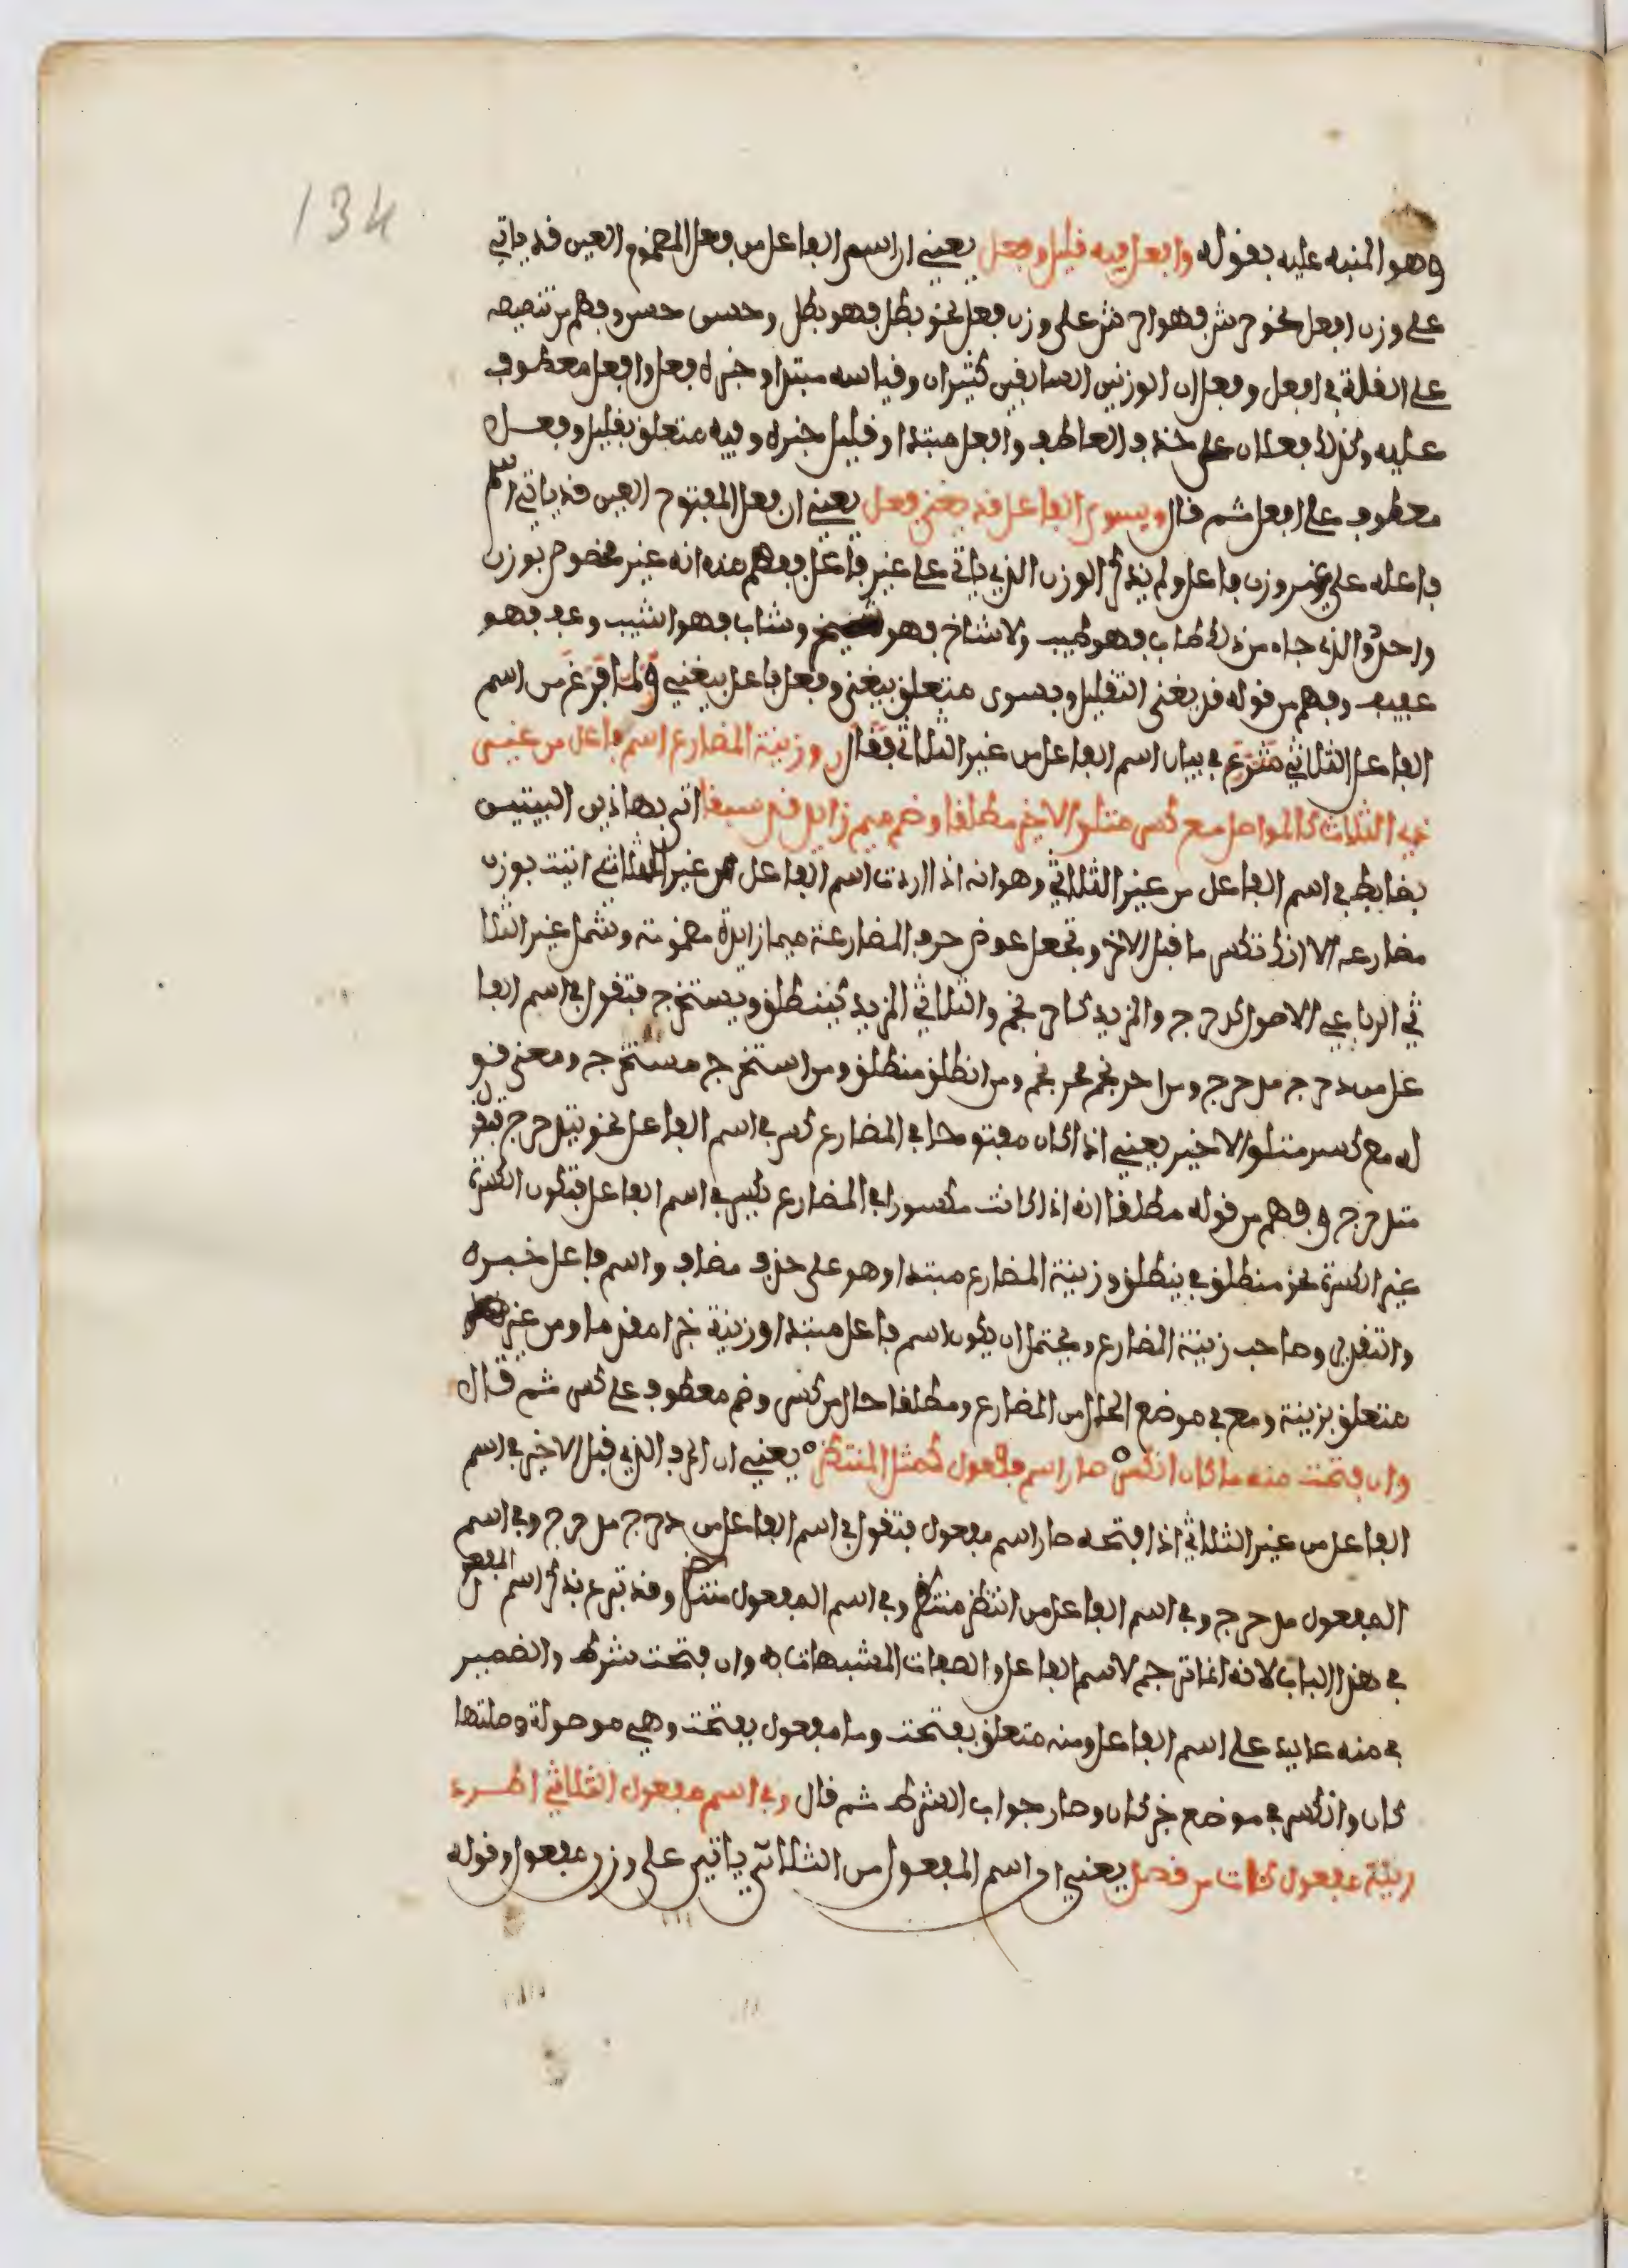 134
وهو المنبه عليه بقوله وافعل فيه قليل وفعل يعني ان اسم الفاعل من فعل المضموم العين قد ياتي
على وزن افعل نحو حرش فهو احرش على وزن فعل نحو بطل فهو بطل وحسن حسن وفهم من تنصيصه
على القلة في افعل وفعل ان الوزنين السابقين كثيران وقياسه مبتدا وخبره فعل وافعل معطوف
عليه وكذلك فعلان على حذف العاطف وافعل مبتدا وقليل خبره وفيه متعلق بقليل وفعل
معطوف على افعل ثم قال وبسوى الفاعل قد يغنى فعل يعني ان فعل المفتوح العين قد ياتي اسم
فاعله على غير وزن فاعل ولم يذكر الوزن الذي ياتي على غير فاعل ففهم منه انه غير مخصوص بوزن
واحد والذي جاء من ذلك طاب فهو طيب وشاخ فهو شيخ وشاب فهو اشيب وعف فهو
عفيف وفهم من قوله قد يغنى التقليل وبسوى متعلق بيغنى وفعل فاعل بيغني ولما فرغ من اسم
الفاعل الثلاثي شرع في بيان اسم الفاعل من غير الثلاثي فقال وزنة المضارع اسم فاعل من غير
ذي الثلاث كالمواصل مع كسر متلو الاخير مطلقا وضم ميم زايد قد سبقا اتى بهاذين البيتين
بضابط في اسم الفاعل من غير الثلاثي وهو انه اذا اردت اسم الفاعل من غير الثلاثي اتيت بوزن
مضارعه الا انك تكسر ما قبل الاخر وتجعل عوض حرف المضارعة ميما زايدة مضمومة وشمل غير الثلا
ثي الرباعي الاصول كدحرج والمزيد كاحرنجم والثلاثي المزيد كينطلق ويستخرج فتقول في اسم الفا
عل من دحرج مدحرج ومن احرنجم محرنجم ومن انطلق منطلق ومن استخرج مستخرج ومعنى قو
له مع كسر متلو الاخير يعني اذا كان مفتوحا في المضارع كسر في اسم الفاعل نحو يتدحرج فهو
متدحرج وفهم من قوله مطلقا انه اذا كانت مكسورا في المضارع كسر في اسم الفاعل فتكون الكسرة
غير الكسرة نحو منطلق في ينطلق وزنة المضارع مبتدا وهو على حذف مضاف واسم فاعل خبره
والتقدير وصاحب زنة المضارع ويحتمل ان يكون اسم فاعل مبتدا وزنة خبرا مقدما ومن غير
متعلق بزنة ومع في موضع الحال من المضارع ومطلقا حال من كسر وضم معطوف على كسر ثم قال
وان فتحت منه ما كان انكسر صار اسم مفعول كمثل المنتظر يعني ان الحرف الذي قبل الاخير في اسم
الفاعل من غير الثلاثي اذا فتحته صار اسم مفعول فتقول في اسم الفاعل من دحرج مدحرج وفي اسم
المفعول مدحرج وفي اسم الفاعل من انتظر منتظر وفي اسم المفعول منتظر وقد تبرع بذكر اسم المفعول
في هذا الباب لانه انما ترجم لاسم الفاعل والصفات المشبهات به وان فتحت شرط والضمير
في منه عايد على اسم الفاعل ومنه متعلق بفتحت وما مفعول بفتحت وهي موصولة وصلتها
كان وانكسر في موضع خبر كان وصار جواب الشرط ثم قال وفي اسم مفعول الثلاثي اطرد
زنة مفعول كات من قصد يعني ان اسم المفعول من الثلاثي ياتي على وزن مفعول وقوله